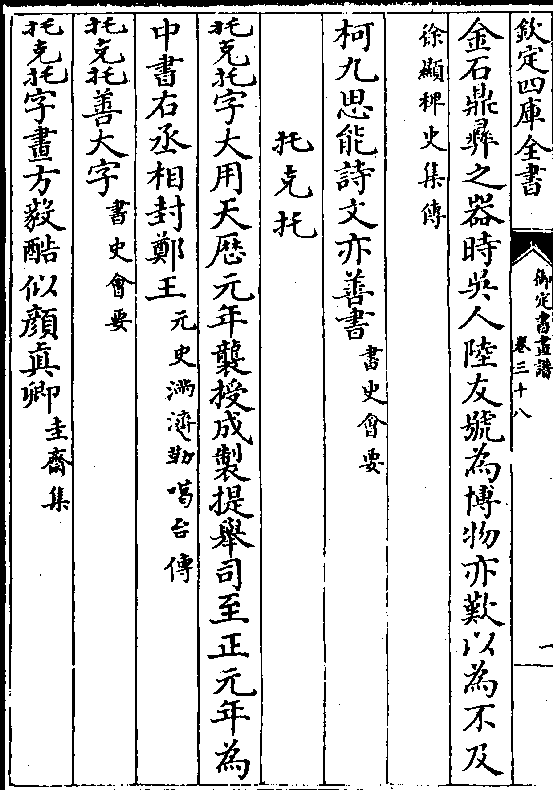 欽定四庫全書
御定書畫譜
卷三十八
金石鼎彝之器時吳人陸友號為博物亦歎以為不及
徐顯稗史集傳
柯九思能詩文亦善書書史會要
托克托
托克托字大用天厯元年襲授成製提舉司至正元年為
中書右丞相封鄭王元史滿濟勒噶台傳
托克托善大字書史會要
托克托字畫方毅酷似顏真卿圭齋集